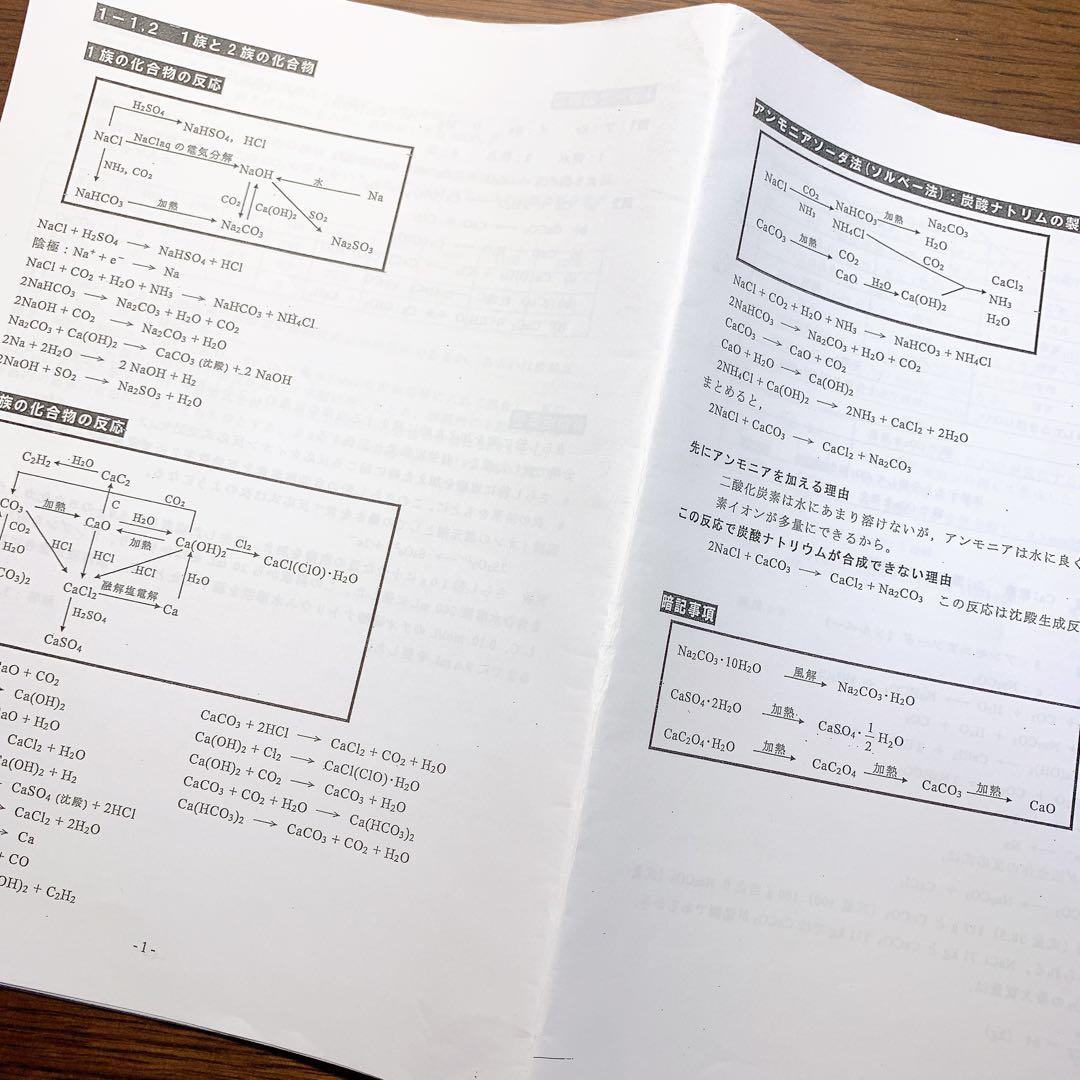 1－1.2　1族と2族の化合物
1族の化合物の反応
H₂SO₄
NaHSO₄, HCl
NaCl
NaClaq の電気分解
NaOH
水
Na
NH₃, CO₂
CO₂
Ca(OH)₂
SO₂
NaHCO₃
加熱
Na₂CO₃
Na₂SO₃
NaCl + H₂SO₄ → NaHSO₄ + HCl
陰極：Na⁺ + e⁻ → Na
NaCl + CO₂ + H₂O + NH₃ → NaHCO₃ + NH₄Cl
2NaHCO₃ → Na₂CO₃ + H₂O + CO₂
2NaOH + CO₂ → Na₂CO₃ + H₂O
Na₂CO₃ + Ca(OH)₂ → CaCO₃ (沈殿) + 2 NaOH
2Na + 2H₂O → 2 NaOH + H₂
2NaOH + SO₂ → Na₂SO₃ + H₂O
族の化合物の反応
C₂H₂
H₂O
CaC₂
C
CO₂
CO₃
加熱
CaO
H₂O
加熱
Ca(OH)₂
Cl₂
CaCl(ClO)·H₂O
CO₂
H₂O
HCl
HCl
HCl
H₂O
CO₃)₂
CaCl₂
融解塩電解
Ca
H₂SO₄
CaSO₄
aO + CO₂
→ Ca(OH)₂
aO + H₂O
CaCl₂ + H₂O
Ca(OH)₂ + H₂
CaSO₄ (沈殿) + 2HCl
CaCl₂ + 2H₂O
→ Ca
+ CO
OH)₂ + C₂H₂
CaCO₃ + 2HCl → CaCl₂ + CO₂ + H₂O
Ca(OH)₂ + Cl₂ → CaCl(ClO)·H₂O
Ca(OH)₂ + CO₂ → CaCO₃ + H₂O
CaCO₃ + CO₂ + H₂O → Ca(HCO₃)₂
Ca(HCO₃)₂ → CaCO₃ + CO₂ + H₂O
- 1 -
アンモニアソーダ法(ソルベー法)：炭酸ナトリムの製
NaCl
CO₂
NH₃
NaHCO₃
加熱
Na₂CO₃
H₂O
CO₂
NH₄Cl
CaCO₃
加熱
CO₂
CaO
H₂O
Ca(OH)₂
CaCl₂
NH₃
H₂O
NaCl + CO₂ + H₂O + NH₃ → NaHCO₃ + NH₄Cl
2NaHCO₃ → Na₂CO₃ + H₂O + CO₂
CaCO₃ → CaO + CO₂
CaO + H₂O → Ca(OH)₂
2NH₄Cl + Ca(OH)₂ → 2NH₃ + CaCl₂ + 2H₂O
まとめると,
2NaCl + CaCO₃ → CaCl₂ + Na₂CO₃
先にアンモニアを加える理由
二酸化炭素は水にあまり溶けないが，アンモニアは水に良く
素イオンが多量にできるから。
この反応で炭酸ナトリウムが合成できない理由
2NaCl + CaCO₃ → CaCl₂ + Na₂CO₃　この反応は沈殿生成反
暗記事項
Na₂CO₃·10H₂O 風解→ Na₂CO₃·H₂O
CaSO₄·2H₂O 加熱→ CaSO₄·1/2 H₂O
CaC₂O₄·H₂O 加熱→ CaC₂O₄ 加熱→ CaCO₃ 加熱→ CaO